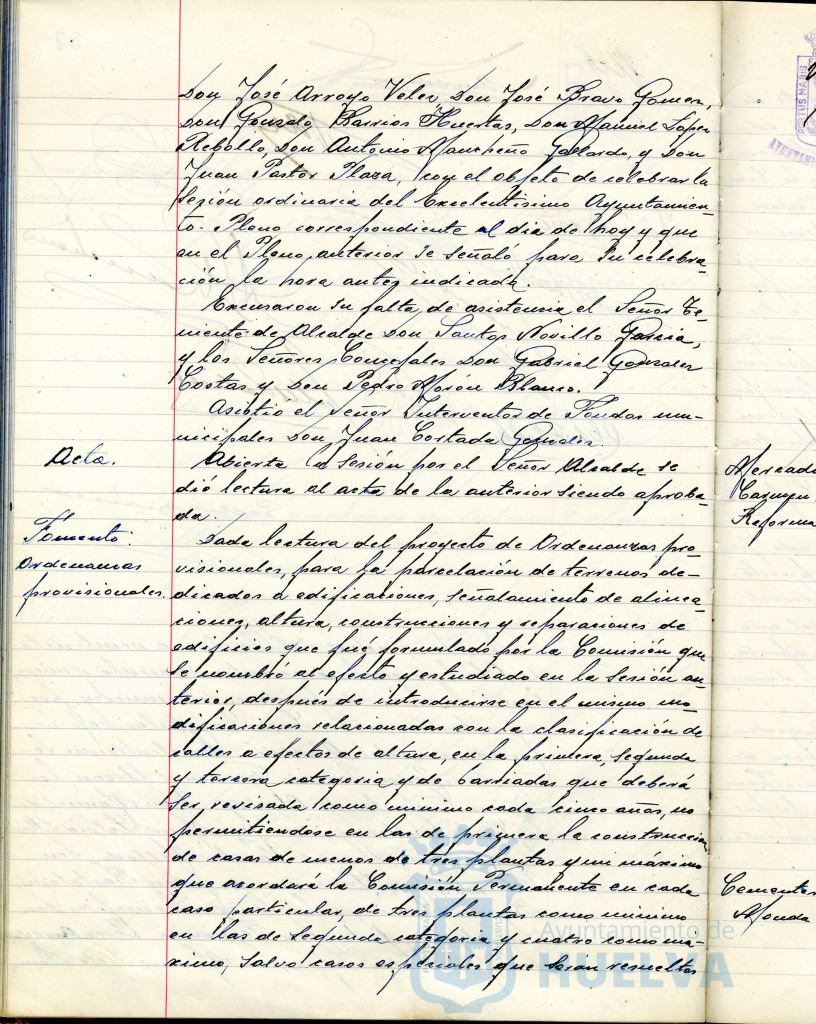 Don José Arroyo Velez, Don José Bravo Gomez,
Don Gonzalo Barrios Huertas, Don Manuel Lopez
Rebollo, Don Antonio Mancheño Gallardo, y Don
Juan Pastor Plaza, con el objeto de celebrar la
Sesión ordinaria del Excelentisimo Ayuntamien-
to Pleno correspondiente al dia de hoy y que
en el Pleno anterior se señaló para su celebra-
ción la hora antes indicada.
Excusaron su falta de asistencia el Señor Te-
niente de Alcalde Don Santos Novillo Garcia,
y los Señores Concejales Don Gabriel Gonzalez
Costas y Don Pedro Morón Blanco.
Asistió el Señor Interventor de Fondos mu-
nicipales Don Juan Cortada Gonzalez.
Acta.
Abierta la Sesión por el Señor Alcalde se
dió lectura al acta de la anterior siendo aproba-
da.
Fomento.
Ordenanzas
provisionales.
Dada lectura del proyecto de Ordenanzas pro-
visionales, para la parcelación de terrenos de-
dicados a edificaciones, señalamiento de alinea-
ciones, altura, construcciones y reparaciones de
edificios que fué formulado por la Comisión que
se nombró al efecto y estudiado en la Sesión an-
terior, después de introducirse en el mismo mo-
dificaciones relacionadas con la clasificación de
calles a efectos de altura, en la primera, segunda
y tercera categoria y de barriadas que deberá
ser revisada como minimo cada cinco años, no
permitiendose en las de primera la construccion
de casas de menos de tres plantas y un máximo
que acordará la Comisión Permanente en cada
caso particular, de tres plantas como minimo
en las de segunda categoria y cuatro como ma-
ximo, salvo casos especiales que seran resueltos
Mercado
Carmen
Reforma
Cementerio
Monda
PORTUS MARIS
AYUNTAM
Ayuntamiento de
HUELVA